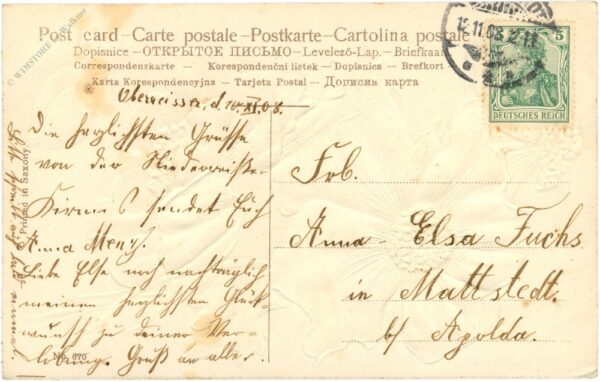 Post card - Carte postale - Postkarte - Cartolina postale
Dopisnice - ОТКРЫТОЕ ПИСЬМО - Levelező-Lap. - Briefkaart
Correspondenzkarte - Korespondenční lístek - Dopisnica - Brefkort
Karta Korespondencyjna - Tarjeta Postal - Дописна карта
d. 10. XI. 08.
Die herzlichsten Grüsse
von der
Kirmes sendet Euch
Anna
Liebe Else noch nachträglich
meinen herzlichsten Glück-
wunsch zu deiner Ver-
lobung. Gruß an alle.
Printed in Saxony
No. 670
© WIMSTORE
DEUTSCHES REICH
5
Frl.
Anna - Elsa Fuchs
in Mattstedt.
b/ Apolda.